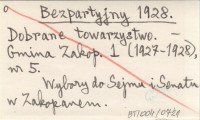 Bezpartyjny 1928.
Dobrane towarzystwo. –
Gmina Zakop. 1 (1927–1928),
nr 5.
Wybory do Sejmu i Senatu
w Zakopanem.